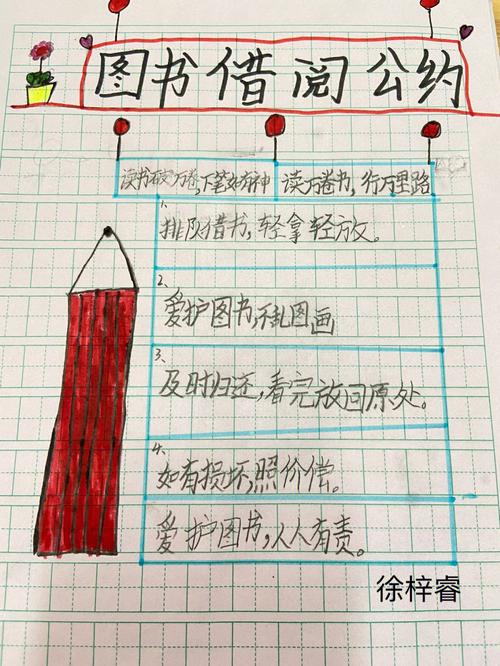 图书借阅公约
读书破万卷,下笔如有神 读万卷书,行万里路
1、
排队借书,轻拿轻放。
2、
爱护图书,不乱图画
3、
及时归还,看完放回原处。
4、
如有损坏,照价偿。
爱护图书,人人有责。
徐梓睿